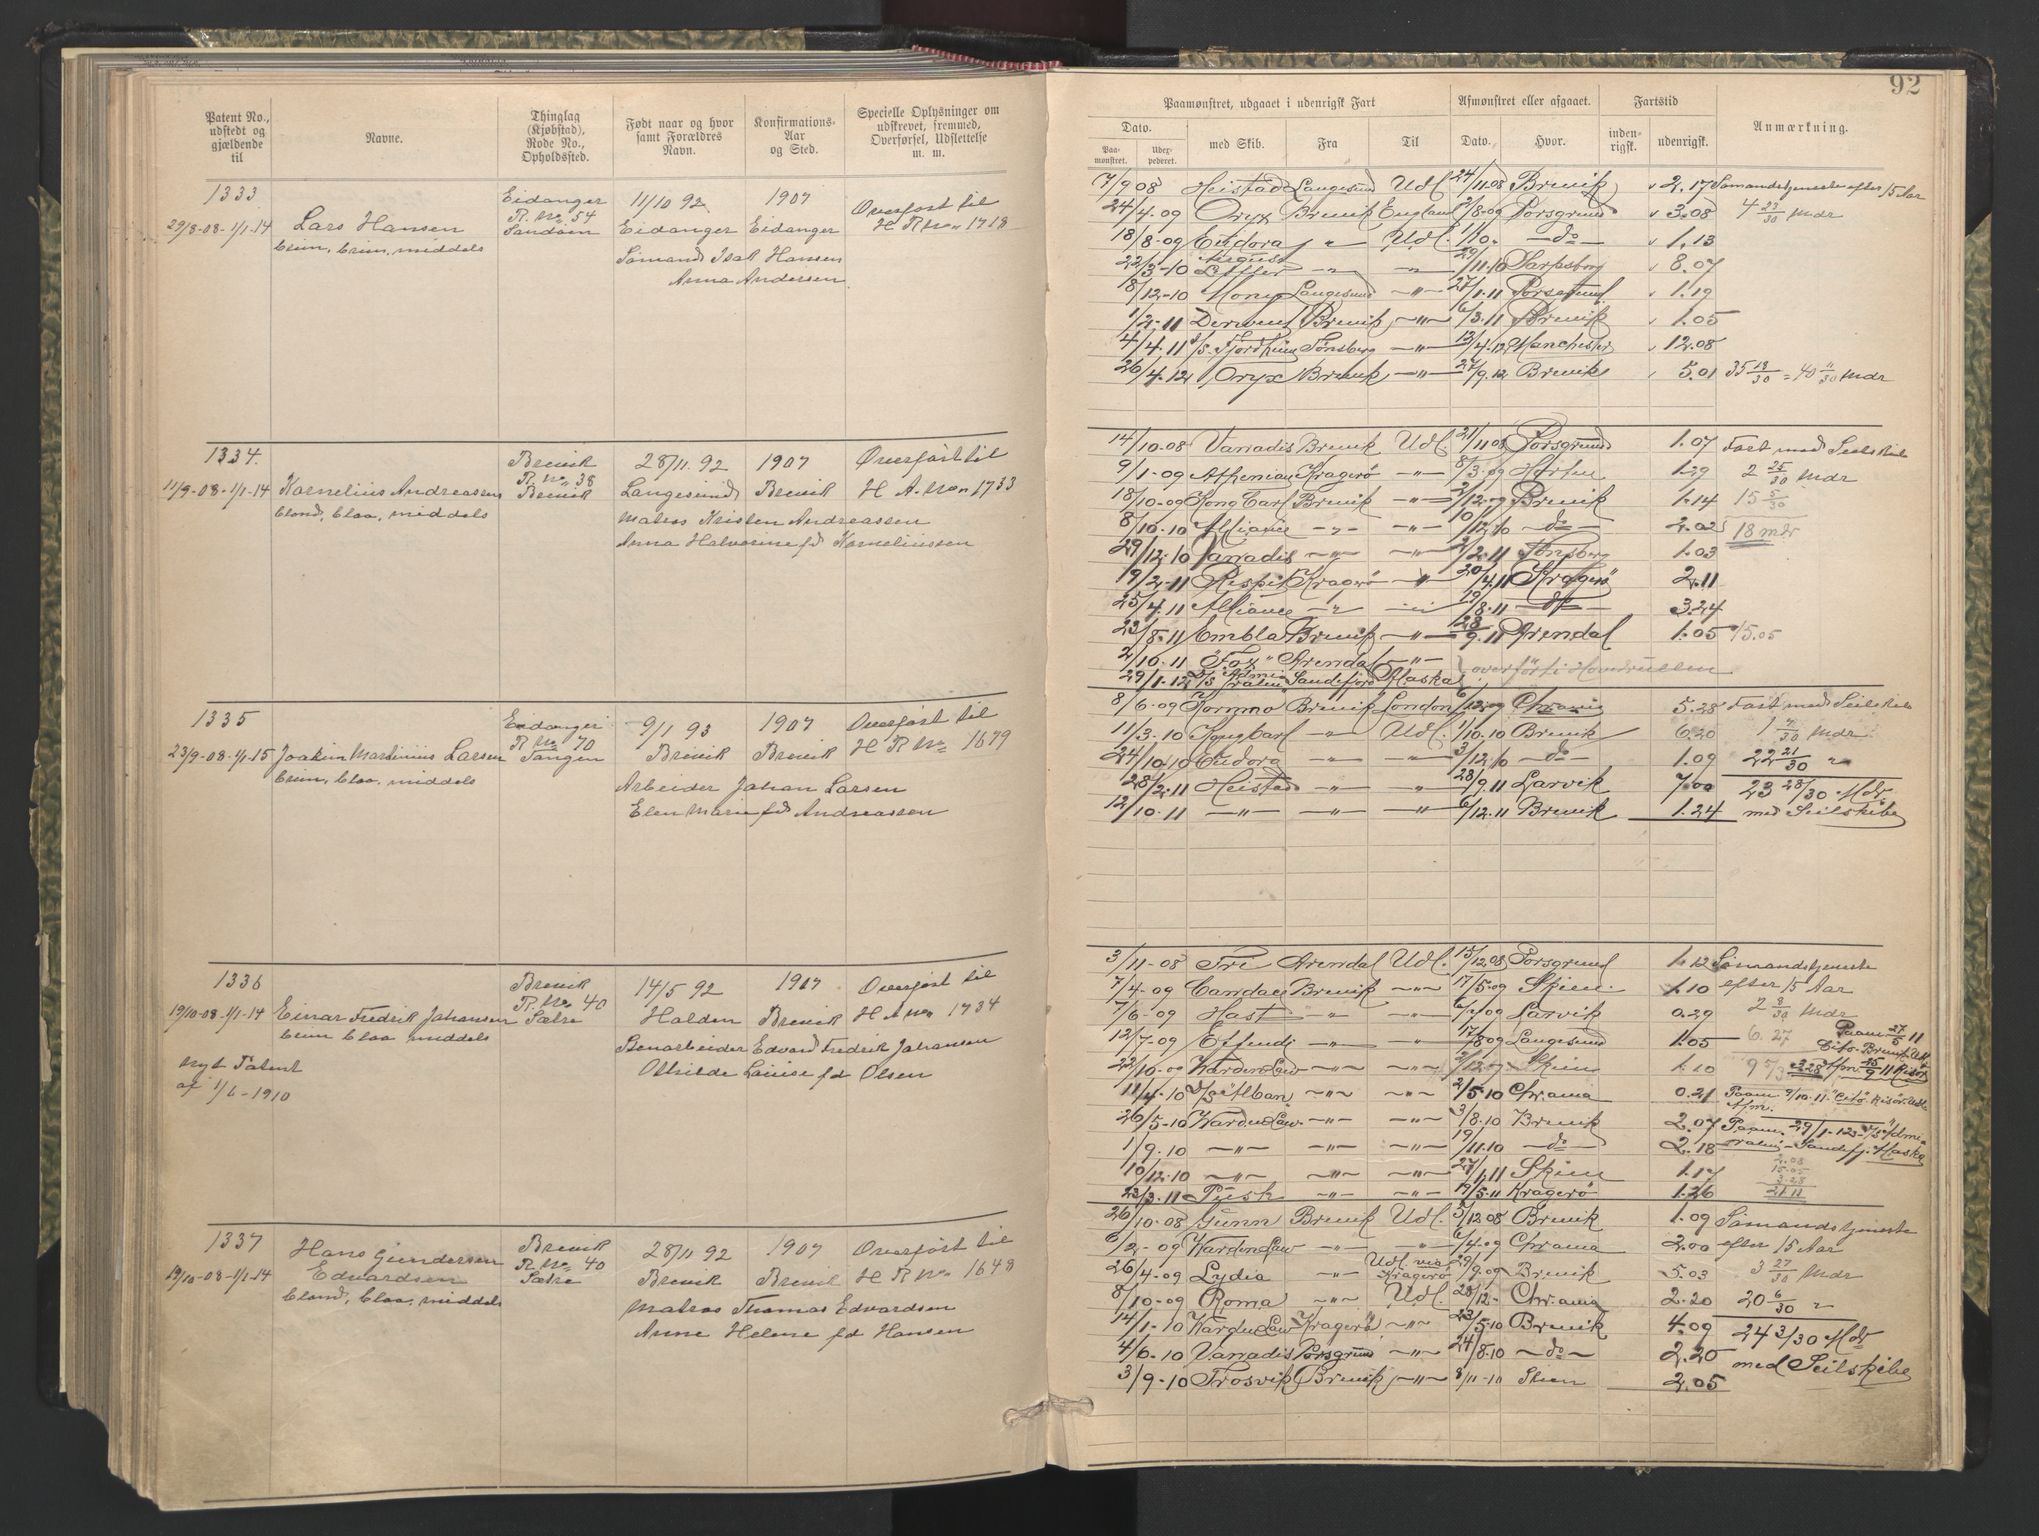 Patent No., udstedt og gjældende til
Navne.
Thinglag (Kjøbstad), Rode No., Opholdssted.
Født naar og hvor samt Forældres Navn.
Konfirmations-Aar og Sted.
Specielle Oplysninger om udskrevet, fremmed, Overførsel, Udslettelse m. m.
1333
29/8-08-1/1-14
Lars Hansen
Eidanger
R. No 54
Sandøen
11/10 92
1907
Overført til
H R No 1718
Eidanger Eidanger
Sømand Isak Hansen
Anna Andersen
1334.
11/9-08-1/1-14
Kornelius Andreassen
blond, blaa, middels
Brevik
R. No 38
Brevik
28/11. 92
1907
Overført til
H A. No 1733
Langesund Brevik
Matros Kristen Andreassen
Anna Halvorine fd Korneliussen
1335
23/9-08-1/1-15
Joakim Martinius Larsen
brun, blaa, middels
Eidanger
R No 70
Tangen
9/1 93
1907
Overført til
H R No 1679
Brevik Brevik
Arbeider Johan Larsen
Elen Marie fd Andreassen
1336
19/10-08-1/1-14
Einar Fredrik Johansen
brun blaa middels
Nyt Patent
af 1/6-1910
Brevik
R No 40
Sætre
14/5 92
1907
Overført til
H A No 1734
Halden Brevik
Stenarbeider Edvard Fredrik Johansen
Othilde Louise fd Olsen
1337
19/10-08-1/1-14
Hans Gundersen
Edvardsen
blond, blaa, middels
Brevik
R No 40
Sætre
28/11 92
1907
Overført til
H R No 1648
Brevik Brevik
Matros Thomas Edvardsen
Anne Helene fd Hansen
92
Paamønstret, udgaaet i udenrigsk Fart
Afmønstret eller afgaaet.
Fartstid
Anmærkning.
Dato.
Paamønstret.
Udexpederet.
med Skib.
Fra
Til
Dato.
Hvor.
indenrigsk.
udenrigsk.
7/9 08 Heistad Langesund Udl. 24/11.08 Brevik 2.17 Sømandstjeneste efter 15 Aar
24/4.09 Oryx Brevik England 2/8.09 Porsgrund 3.08 4 23/30 Mdr
18/8-09 Eudora " Udl. 1/10. - do - 1.13
22/3-10 -"- -"- 29/11.10 Sarpsborg 8.07
8/12-10 Langesund -"- 27/1.11 Porsgrund 1.19
1/2-11 Derwent Brevik -"- 6/3.11 Brevik 1.05
4/4.11 Tønsberg -"- 13/4.12 Manchester 12.08
26/4.12 Oryx Brevik -"- 27/9.12 Brevik 5.01 35 18/30 = 40 11/30 Mdr
14/10-08 Vanadis Brevik Udl. 21/11 08 Porsgrund 1.07 Fart med Seilskib
9/1-09 Athenian Kragerø -"- 8/3.09 Horten 1.29 2 25/30 Mdr
18/10-09 Kong Carl Brevik -"- 2/12.09 Brevik 1.14 15 5/30
8/10.10 Alliance -"- -"- 10/12.10 - do - 2.02 18 mdr
29/12.10 Vanadis -"- -"- 2/2.11 Tønsberg 1.03
19/2-11 Respit Kragerø -"- 20/4.11 Kragerø 2.11
25/4.11 Alliance -"- -"- 19/8.11 - do - 3.24
23/8.11 Embla Brevik -"- 28/9.11 Arendal 1.05 15.05
2/10.11 "Fox" Arendal -"- overført i Hovedrullen
29/1-12 D/S Admiralen Sandefjord Alaska
8/6-09 Kommo Brevik London 6/12.09 Chr.ania 5.28 Fart med Seilskib
11/3.10 Kong Carl -"- Udl. 1/10.10 Brevik 6.20
24/10.10 Eudora -"- -"- 3/12.10 - do - 1.09 22 21/30 "
28/2.11 Heistad -"- -"- 28/9.11 Larvik 7.00 23 28/30 Mdr
12/10.11 -"- -"- -"- 6/12.11 Brevik 1.24 med Seilskibe
3/11-08 Fri Arendal Udl. 15/12.08 Porsgrund 1.12 Sømandstjeneste
7/4.09 Brevik -"- 17/5.09 Skien 1.10 efter 15 Aar
7/6-09 Hast " " Larvik 0.29 2 8/30 Mdr
12/7-09 Effendi -"- -"- Langesund 1.05 6.27
22/10-09 -"- -"- Skien 1.10
11/4.10 D/S Alban -"- -"- 2/5.10 Chr.ania 0.21
26/5-10 -"- -"- 3/8.10 Brevik 2.07
1/9.10 -"- -"- -"- 19/11.10 - do - 2.18
10/12.10 -"- -"- -"- 27/1.11 Skien 1.17
23/3.11 Pusk -"- -"- 19/5.11 Kragerø 1.26
26/10-08 Gunn Brevik Udl. 5/12 08 Brevik 1.09 Sømandstjeneste
6/2-09 -"- -"- 6/4.09 Chr.ania 2.00 efter 15 Aar
26/4-09 Lydia -"- Udl. via Kragerø 29/9.09 Brevik 5.03 3 27/30 Mdr
8/10-09 Roma -"- Udl. 28/12- Chr.ania 2.20 20 6/30 "
14/1-10 Kragerø -"- 23/5.10 Brevik 4.09 24 3/30 Mdr
4/6-10 Vanadis Porsgrund -"- 24/8.10 - do - 2.20 med Seilskibe
3/9-10 Frosvik Brevik -"- 8/11-10 Skien 2.05